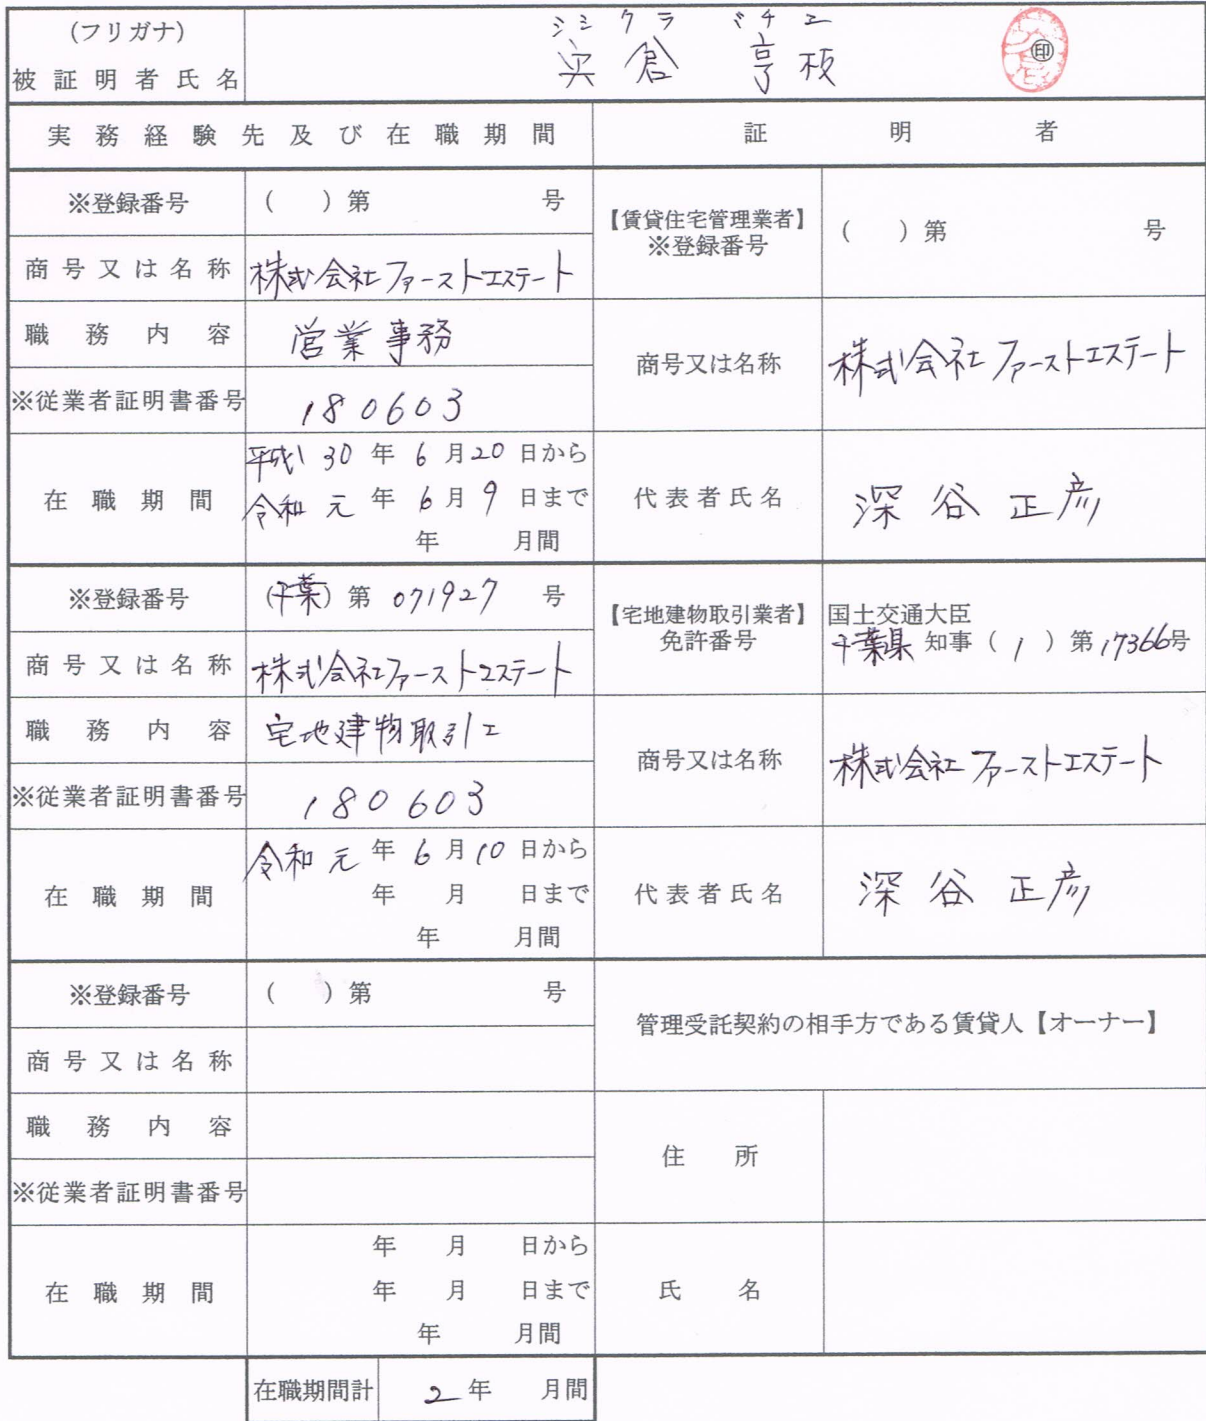 (フリガナ)
シシクラ
被証明者氏名
倉 亨 枝
印
実務経験先及び在職期間
証明者
※登録番号
( )第 号
商号又は名称
株式会社ファーストエステート
職務内容
営業事務
※従業者証明書番号
180603
在職期間
平成30年6月20日から
令和元年6月9日まで
年 月間
【賃貸住宅管理業者】
※登録番号
( )第 号
商号又は名称
株式会社ファーストエステート
代表者氏名
深谷正彦
※登録番号
(千葉)第071927号
商号又は名称
株式会社ファーストエステート
職務内容
宅地建物取引士
※従業者証明書番号
180603
在職期間
令和元年6月10日から
年 月 日まで
年 月間
【宅地建物取引業者】
免許番号
国土交通大臣
千葉県知事(1)第17366号
商号又は名称
株式会社ファーストエステート
代表者氏名
深谷正彦
※登録番号
( )第 号
商号又は名称
職務内容
※従業者証明書番号
在職期間
年 月 日から
年 月 日まで
年 月間
管理受託契約の相手方である賃貸人【オーナー】
住所
氏名
在職期間計
2年 月間